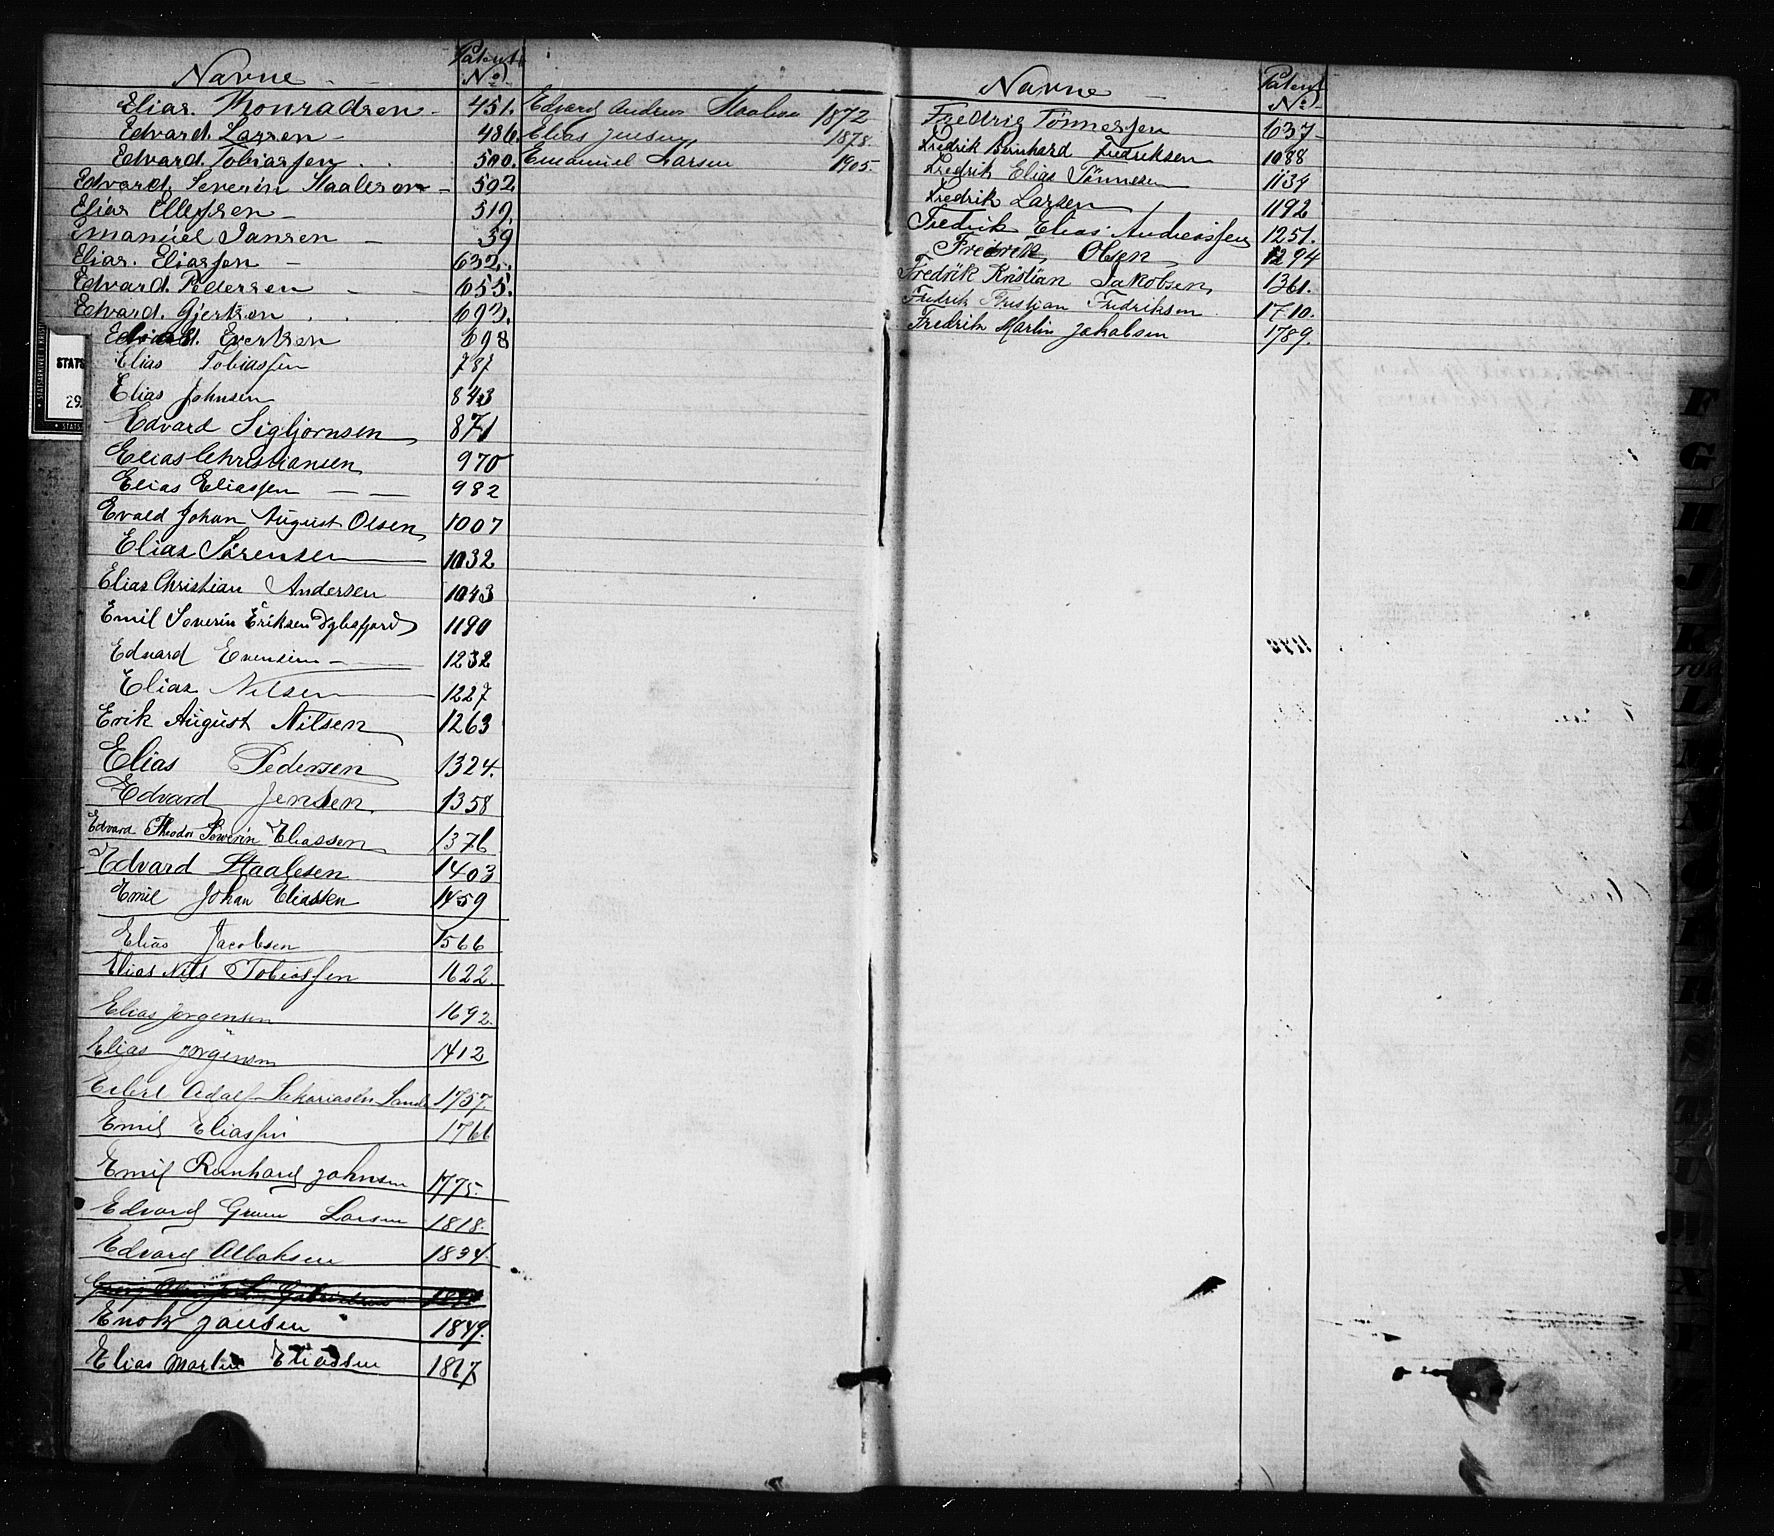 Navne Patent No
Elias Konradsen 451.
Edvard Larsen 486
Edvard Tobiassen 500.
Edvard Severin Staalesen 502
Elias Ellefsen 519.
Emanuel Jansen 59
Elias Eliassen 632.
Edvard Pedersen 655.
Edvard Gjertsen 693.
Edvard Evertsen 698
Elias Tobiassen 787
Elias Johnsen 843
Edvard Sigbjørnsen 871
Elias Christiansen 970
Elias Eliassen 982
Evald Johan August Olsen 1007
Elias Sørensen 1032
Elias Christian Andersen 1043
Emil Severin Eriksen Dybesfjord 1190
Edvard Evensen 1232
Elias Nilsen 1227
Erik August Nilsen 1263
Elias Pedersen 1324.
Edvard Jensen 1358
Edvard Theodor Severin Eliassen 1376
Edvard Staalesen 1403
Emil Johan Eliassen 1459
Elias Jacobsen 1566
Elias Nils Tobiassen 1622.
Elias Jørgensen 1692.
Elias Jørgensen 1412
Eilert Adolf Sakariasen Sande 1757.
Emil Eliassen 1766
Emil Reinhard Johnsen 1775.
Edvard Larsen 1818.
Edvard Albaksen 1834.
Enok Jansen 1849.
Elias Martin Eliassen 1867
Edvard Andreas Staalesen 1872
Elias Jensen, 1878.
Emanuel Larsen 1905.
Navne Patent No
Fredrig Tønnessen 637
Fredrik Bernhard Fredriksen 1088
Fredrik Elias Tønnesen 1134
Fredrik Larsen 1192
Fredrik Elias Andreassen 1251.
Fredrik Olsen 1294
Fredrik Kristian Jakobsen 1361.
Fredrik Kristian Fredriksen 1710.
Fredrik Martin Jakobsen 1789.
STATS
29.
F
G
H
J
K
L
M
N
O
P
R
S
T
U